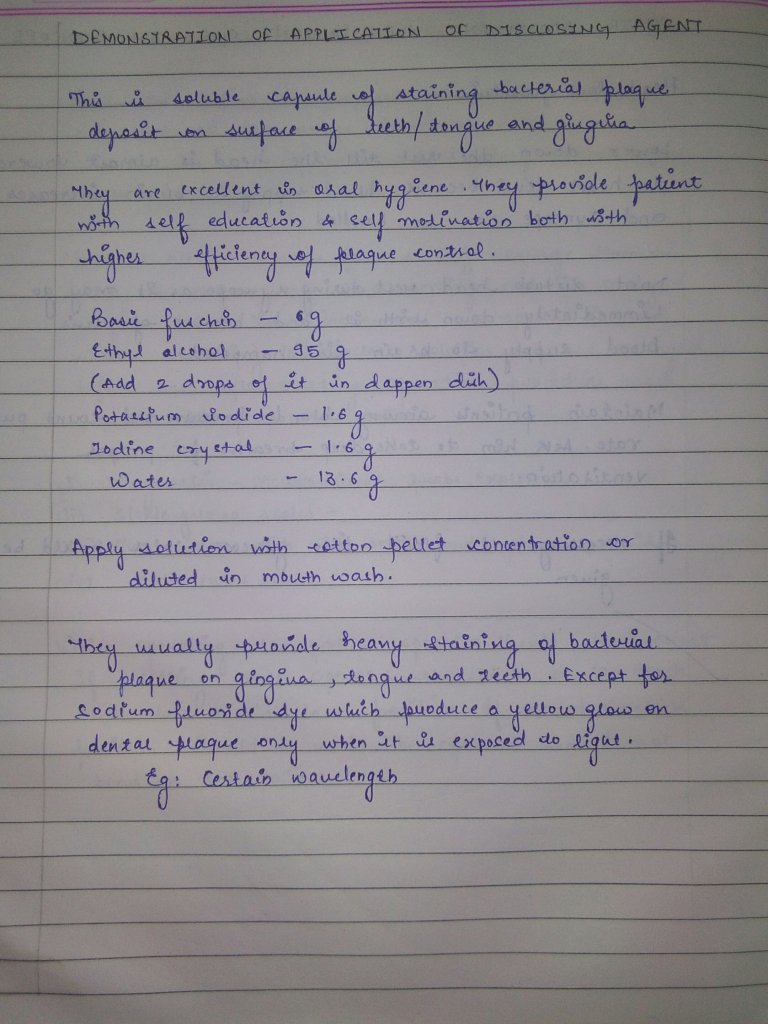 DEMONSTRATION OF APPLICATION OF DISCLOSING AGENT
This is soluble capsule of staining bacterial plaque
deposit on surface of teeth/tongue and gingiva
They are excellent in oral hygiene. They provide patient
with self education & self motivation both with
higher efficiency of plaque control.
Basic fuschin - 6g
Ethyl alcohol - 95 g
(Add 2 drops of it in dappen dish)
Potassium iodide - 1.6 g
Iodine crystal - 1.6 g
Water - 13.6 g
Apply solution with cotton pellet concentration or
diluted in mouth wash.
They usually provide heavy staining of bacterial
plaque on gingiva, tongue and teeth. Except for
sodium fluoride dye which produce a yellow glow on
dental plaque only when it is exposed to light.
Eg: Certain wavelength